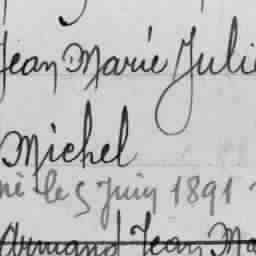 Jean Marie Julie
Michel
né le 5 Juin 1891
Armand Jean Ma